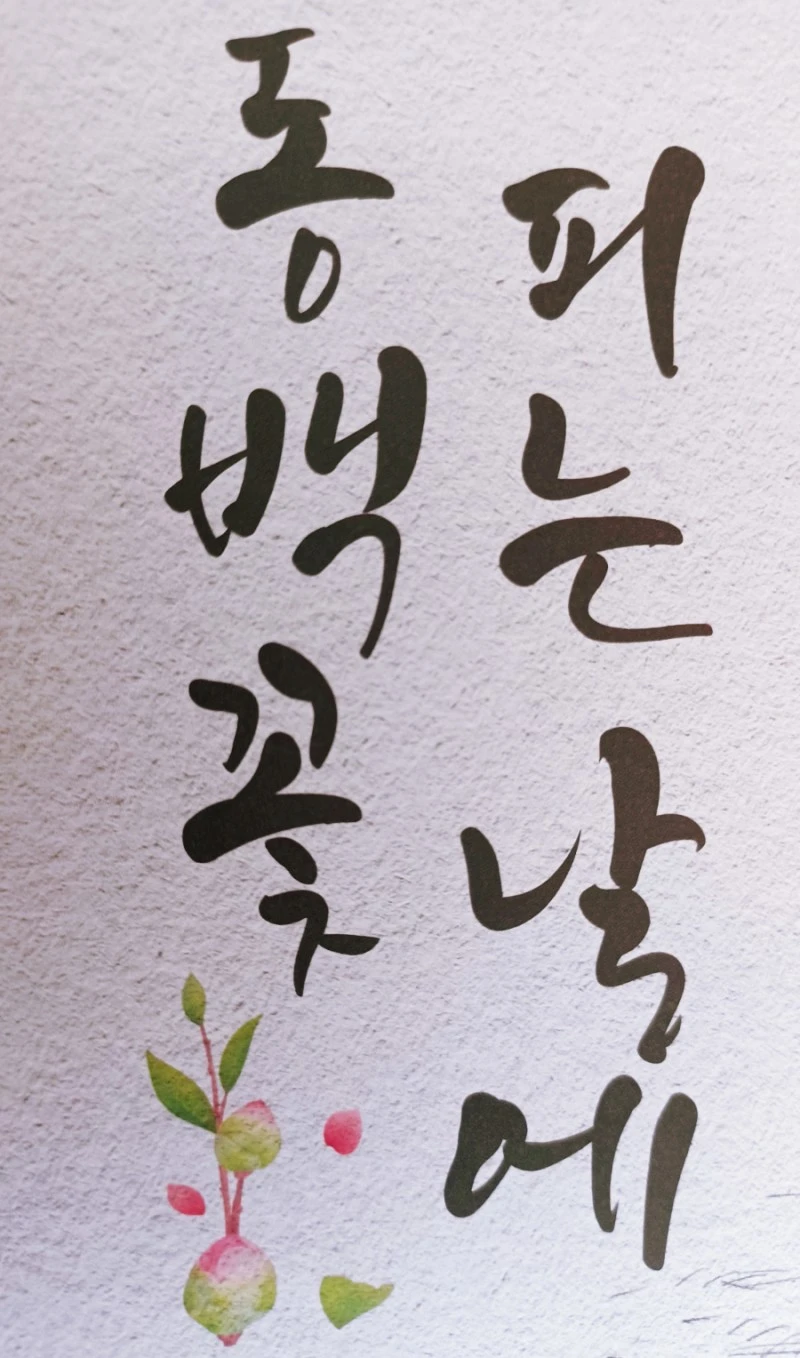 동백꽃
피는 날에